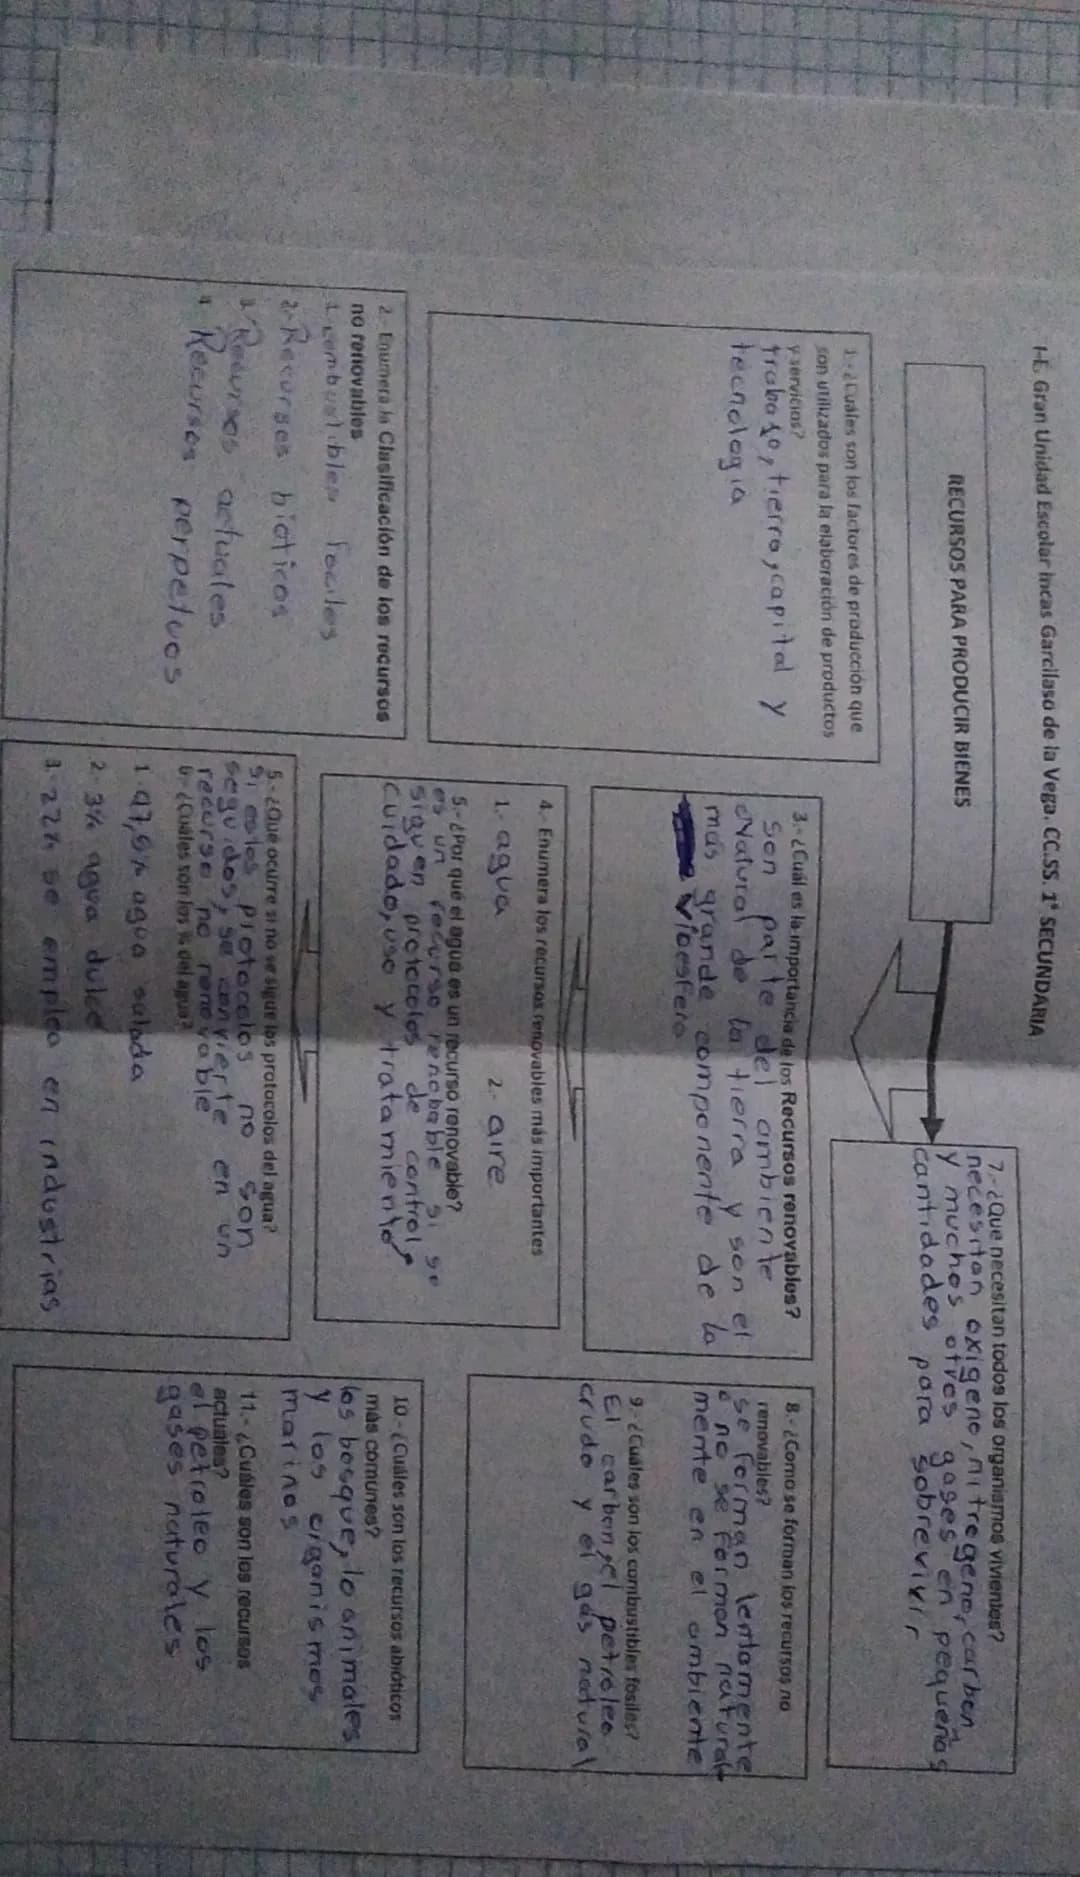 I.E. Gran Unidad Escolar Incas Garcilaso de la Vega. CC.SS. 1° SECUNDARIA
RECURSOS PARA PRODUCIR BIENES
1.- ¿Cuáles son los factores de producción que
son utilizados para la elaboración de productos
y servicios?
trabajo, tierra, capital y
tecnologia
2.- Enumera la Clasificación de los recursos
no renovables
1. combustibles fociles
2- Recurses bioticos
3. Recursos actuales
4 Recursos perpetuos
3.- ¿Cuál es la importancia de los Recursos renovables?
Son parte del ambiente
natural de la tierra y son el
más grande componente de la
vioesfera
4.- Enumera los recursos renovables más importantes
1.- agua 2.- aire
5.- ¿Por qué el agua es un recurso renovable?
es un recurso renobable si se
siguen protocolos de control,
cuidado, uso y tratamiento
5.- ¿Qué ocurre si no se sigue los protocolos del agua?
Si estos protocolos no son
seguidos, se convierte en un
recurso no removable
6- ¿Cuáles son los % del agua?
1. 97,5% agua salada
2.- 3% agua dulce
3.- 22% se emplea en industrias
7.- ¿Que necesitan todos los organismos vivientes?
necesitan oxigeno, nitregeno, carbon
y muchos otros gases en pequeñas
cantidades para sobrevivir
8.- ¿Como se forman los recursos no
renovables?
se forman lentamente
o no se forman natural
mente en el ambiente
9.- ¿Cuáles son los combustibles fósiles?
El carbon, el petroleo
crudo y el gas natural
10 - ¿Cuáles son los recursos abióticos
más comunes?
los bosque, lo animales
y los organismos
marinos
11.- ¿Cuáles son los recursos
actuales?
el petroleo y los
gases naturales